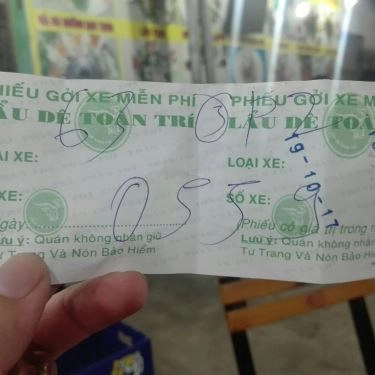 PHIẾU GỞI XE MIỄN PHÍ
LẨU DÊ TOÀN TRÍ
ẠI XE:
XE:
gày:
Lưu ý: Quán không nhận giữ
Tư Trang Và Nón Bảo Hiểm
PHIẾU GỞI XE M
LẨU DÊ TOÀ
LOẠI XE:
SỐ XE:
(Phiếu có giá trị trong n
Lưu ý: Quán không nhận
Tư Trang Và Nón Bảo Hiể
63
0559
19-10-17